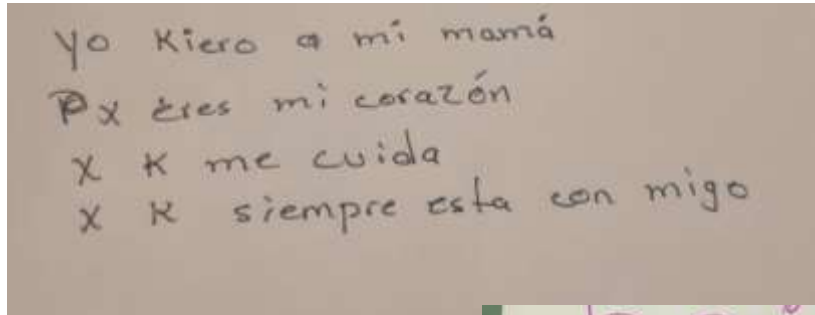 Yo Kiero a mi mamá
Px eres mi corazón
X K me cuida
X K siempre esta con migo